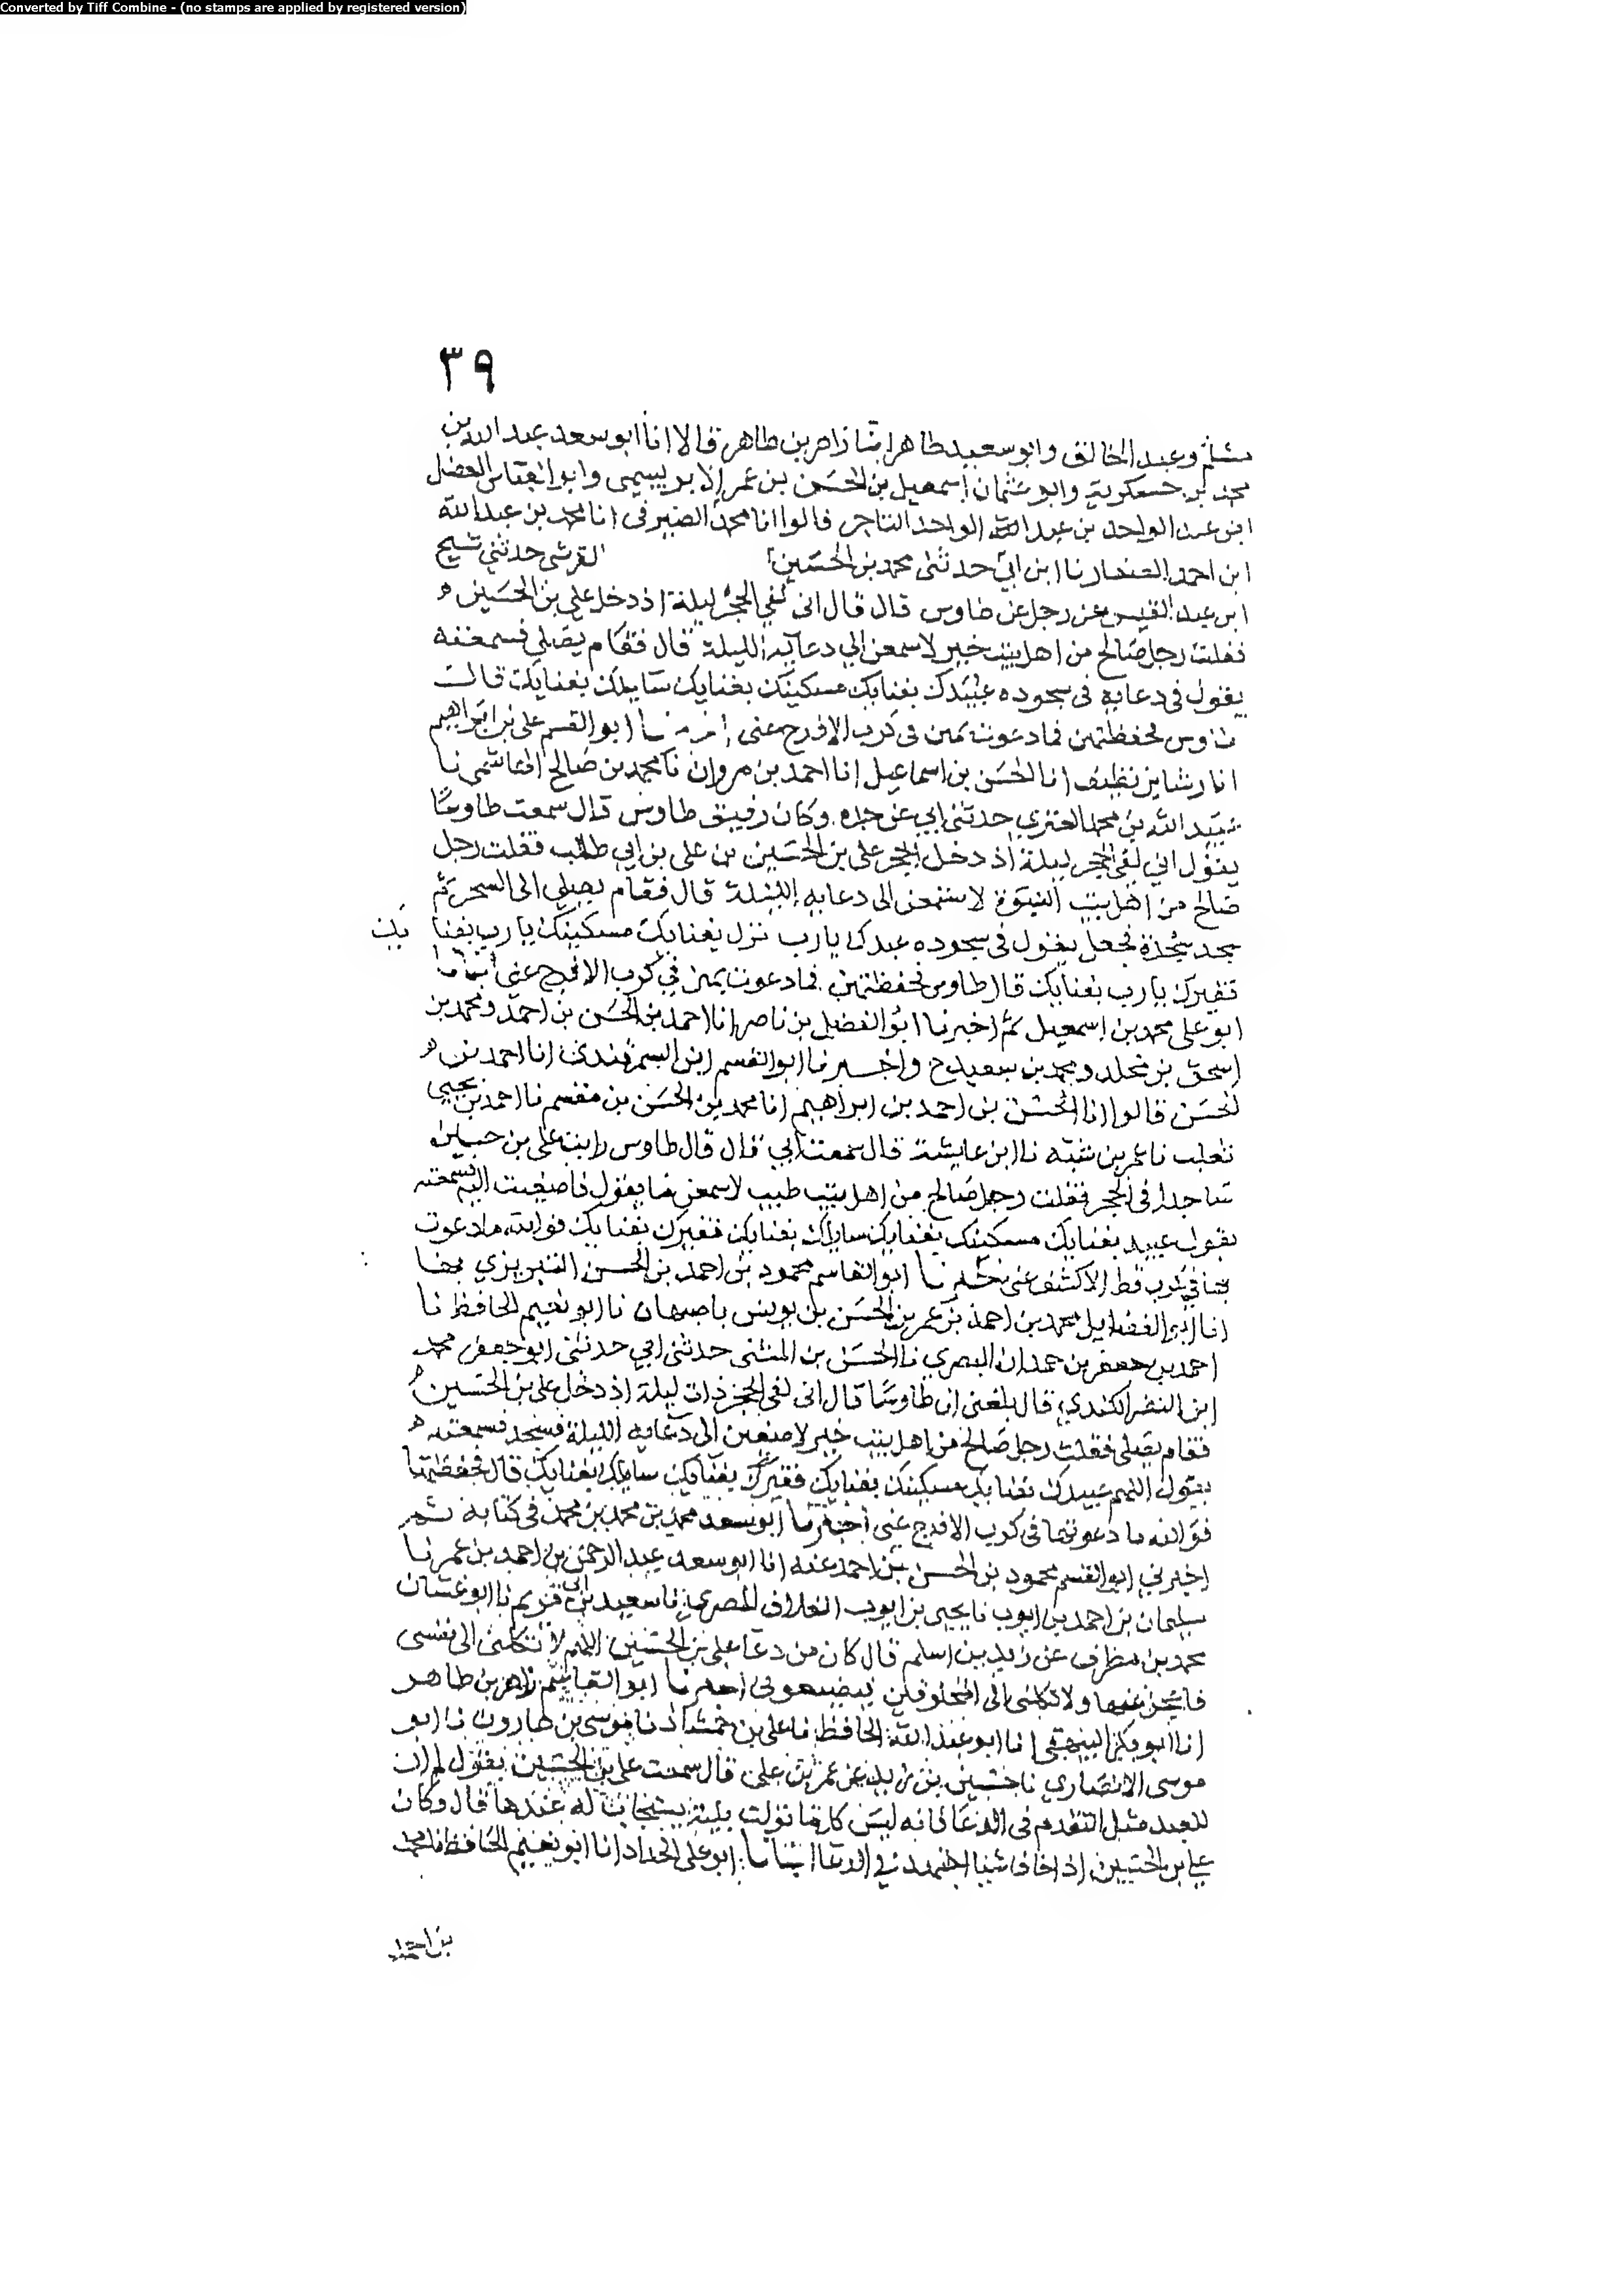 Converted by Tiff Combine - (no stamps are applied by registered version)
٣٩
وعبد الخالق وابو سعيد طاهر ابنا زاهر بن طاهر قالا انا ابو سعد عبد الله بن
محمد بن حسكويه وابو عثمان اسمعيل بن الحسن بن عمر الابريسمي وابو الفضل
ابن عبد الواحد بن عبد الواحد التاجر قالوا انا محمد الصيرفى انا محمد بن عبد الله
ابن احمد الصفار نا ابن ابي حدثنى محمد بن الحسين القرشى حدثني شيخ
ابن عبد القيس عن رجل عن طاوس قال قال انى لفي الحجر ليلة اذ دخل علي بن الحسين
فقلت رجل صالح من اهل بيت خير لاسمعن الي دعايه الليلة قال فقام يصلي فسمعته
يقول فى دعايه فى سجوده عبيدك بفنايك مسكينك بفنايك سايلك بفنايك قال
طاوس فحفظتهن فما دعوت بهن فى كرب الا فرج عنى اخبرنا ابو القسم علي بن ابراهيم
انا رشا بن نظيف انا الحسن بن اسماعيل انا احمد بن مروان نا محمد بن صالح الهاشمي نا
عبيد الله بن محمد العنزي حدثنى ابي عن جده وكان رفيق طاوس قال سمعت طاوسا
يقول اني لفي الحجر ليلة اذ دخل الحجر علي بن الحسين بن علي بن ابي طالب فقلت رجل
صالح من اهل بيت النبوة لاستمعن الى دعايه الليلة قال فقام يصلي الى السحر ثم
سجد سجدة فجعل يقول فى سجوده عبدك يا رب نزل بفنايك مسكينك يا رب بفنا يك
فقيرك يا رب بفنايك قال طاوس فحفظتهن فما دعوت بهن في كرب الا فرج عني انبانا
ابو علي محمد بن اسمعيل ثم اخبرنا ابو الفضل بن ناصر انا احمد بن الحسن بن احمد ومحمد بن
اسحق بن مخلد ومحمد بن سعيد ح واخبرنا ابو القسم ابن السمرقندى انا احمد بن
الحسن قالوا انا الحسن بن احمد بن ابراهيم انا محمد بن الحسن بن مقسم نا احمد بن يحيى
ثعلب نا عمر بن شبه نا ابن عايشة قال سمعت ابي قال قال طاوس رايت علي بن حسين
ساجدا فى الحجر فقلت رجل صالح من اهل بيت طيب لاسمعن ما يقول فاصغيت اليه فسمعته
يقول عبيدك بفنايك مسكينك بفنايك سايلك بفنايك فقيرك بفنايك فوالله ما دعوت
بها في كرب قط الا كشف عنى اخبرنا ابو القاسم محمود بن احمد بن الحسن التبريزي بها
انا ابو الفضايل محمد بن احمد بن عمر بن الحسن بن يونس باصبهان نا ابو نعيم الحافظ نا
احمد بن جعفر بن حمدان البصري نا الحسن بن المثنى حدثنى ابي حدثنى ابو جعفر محمد
ابن النضر الكندي قال بلغني ان طاوسا قال انى لفي الحجر ذات ليلة اذ دخل علي بن الحسين
فقام يصلي فقلت رجل صالح من اهل بيت خير لاصغين الى دعايه الليلة فسجد فسمعته
يقول اللهم عبيدك بفنايك مسكينك بفنايك فقيرك بفنايك سايلك بفنايك قال فحفظتها
فوالله ما دعوت بها فى كرب الا فرج عني اخبرنا ابو سعد محمد بن محمد بن محمد فى كتابه ثم
اخبرني ابو القسم محمود بن الحسن بن احمد عنه انا ابو سعد عبد الرحمن بن احمد بن عمر نا
سليمان بن احمد بن ايوب نا يحيى بن ايوب العلاف المصري نا سعيد بن ابي مريم نا ابو غسان
محمد بن مطرف عن زيد بن اسلم قال كان من دعا علي بن الحسين اللهم لا تكلنى الى نفسى
فاعجز عنها ولا تكلنى الى المخلوقين فيضيعونى اخبرنا ابو القاسم زاهر بن طاهر
انا ابو بكر البيهقي انا ابو عبد الله الحافظ نا علي بن حمشاد نا موسى بن هارون نا ابو
موسى الانصاري نا حسين بن زيد عن عمر بن علي قال سمعت علي بن الحسين يقول لم ار
للعبد مثل التقدم في الدعا فانه ليس كلما نزلت بلية يستجاب له عندها قال وكان
علي بن الحسين اذا خاف شيا اجتهد في الدعا انبانا ابو علي الحداد انا ابو نعيم الحافظ نا محمد
بن احمد